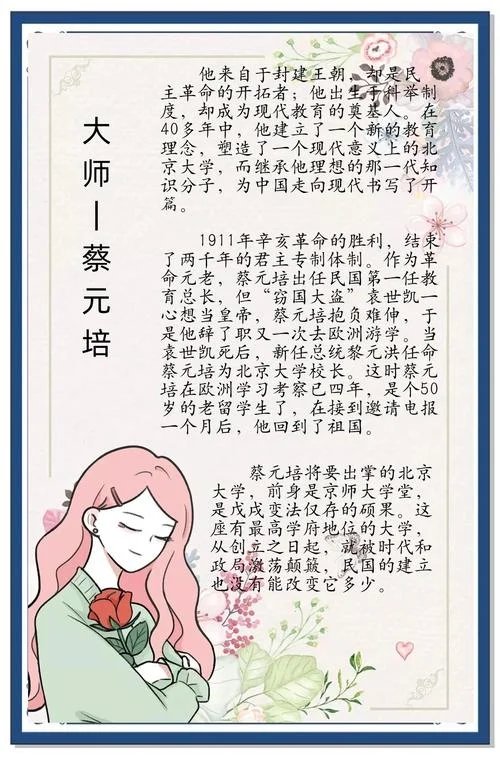 大师—蔡元培
他来自于封建王朝，却是民
主革命的开拓者；他出生于科举制
度，却成为现代教育的奠基人。在
40多年中，他建立了一个新的教育
理念，塑造了一个现代意义上的北
京大学，而继承他理想的那一代知
识分子，为中国走向现代书写了开
篇。
1911年辛亥革命的胜利，结束
了两千年的君主专制体制。作为革
命元老，蔡元培出任民国第一任教
育总长，但“窃国大盗”袁世凯一
心想当皇帝，蔡元培抱负难伸，于
是他辞了职又一次去欧洲游学。当
袁世凯死后，新任总统黎元洪任命
蔡元培为北京大学校长。这时蔡元
培在欧洲学习考察已四年，是个50
岁的老留学生了，在接到邀请电报
一个月后，他回到了祖国。
蔡元培将要出掌的北京
大学，前身是京师大学堂，
是戊戌变法仅存的硕果。这
座有最高学府地位的大学，
从创立之日起，就被时代和
政局激荡颠簸，民国的建立
也没有能改变它多少。